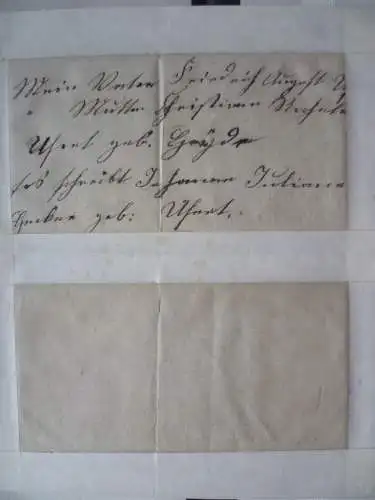 Mein Vater Friedrich August U
" Mutter Christiane
Uhert geb. Heyde
schreibt Johanne Juliane
geb: Uhert.